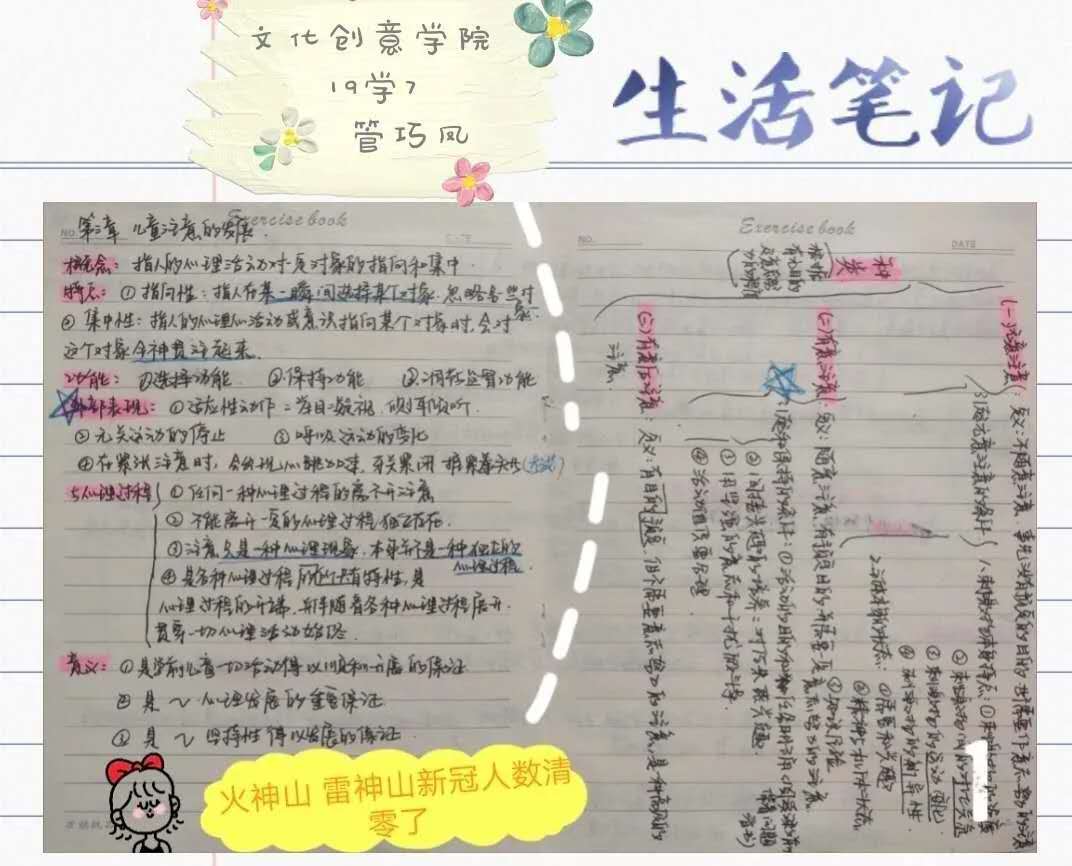 文化创意学院
19学7
管巧凤
生活笔记
Exercise book
NO.
DATE
第三章 儿童注意的发展
概念：指人的心理活动对一定对象的指向和集中．
特点：①指向性：指人在某一瞬间选择某个对象，忽略另些对象．
②集中性：指人的心理活动或意识指向某个对象时，会对
这个对象全神贯注起来．
功能：①选择功能 ②保持功能 ③调节监督功能
外部表现：①适应性动作：举目凝视、侧耳倾听．
②无关运动的停止 ③呼吸运动的变化
④在紧张注意时，会出现心跳加速，牙关紧闭 握紧拳头
与心理过程 ①任何一种心理过程的离不开注意
②不能离开一定的心理过程独立存在．
③注意只是一种心理现象，本身并不是一种独立的
心理过程．
④是各种心理过程所共有特性，是
心理过程的开端，并伴随着各种心理过程展开．
贯穿一切心理活动始终．
意义：①是学前儿童一切活动得以顺利开展的保证
②是～心理发展的重要保证
③是～坚持性得以发展的保证．
Exercise book
NO.
DATE
种类
根据
有无目的
及意志努
力的程度
(一)无意注意：定义：不随意注意，事先没有预定的目的 也不需要作意志努力的注意
引起无意注意的条件
1.刺激物本身的特点：
③刺激物的运动变化
④刺激物的新异性．
2.人本身的状态：①需要和兴趣
②精神和身体状态
③知识经验
(二)有意注意：定义：随意注意，有预定目的并需要一定意志努力的注意
引起和保持的条件：①活动的目的和任务
②间接兴趣的培养：对结果感兴趣
③用坚强的意志和干扰做斗争
④活动组织要合理
(三)有意后注意：定义：有目的，但不需要意志努力的注意，是种高级的
注意
火神山 雷神山新冠人数清
零了
1